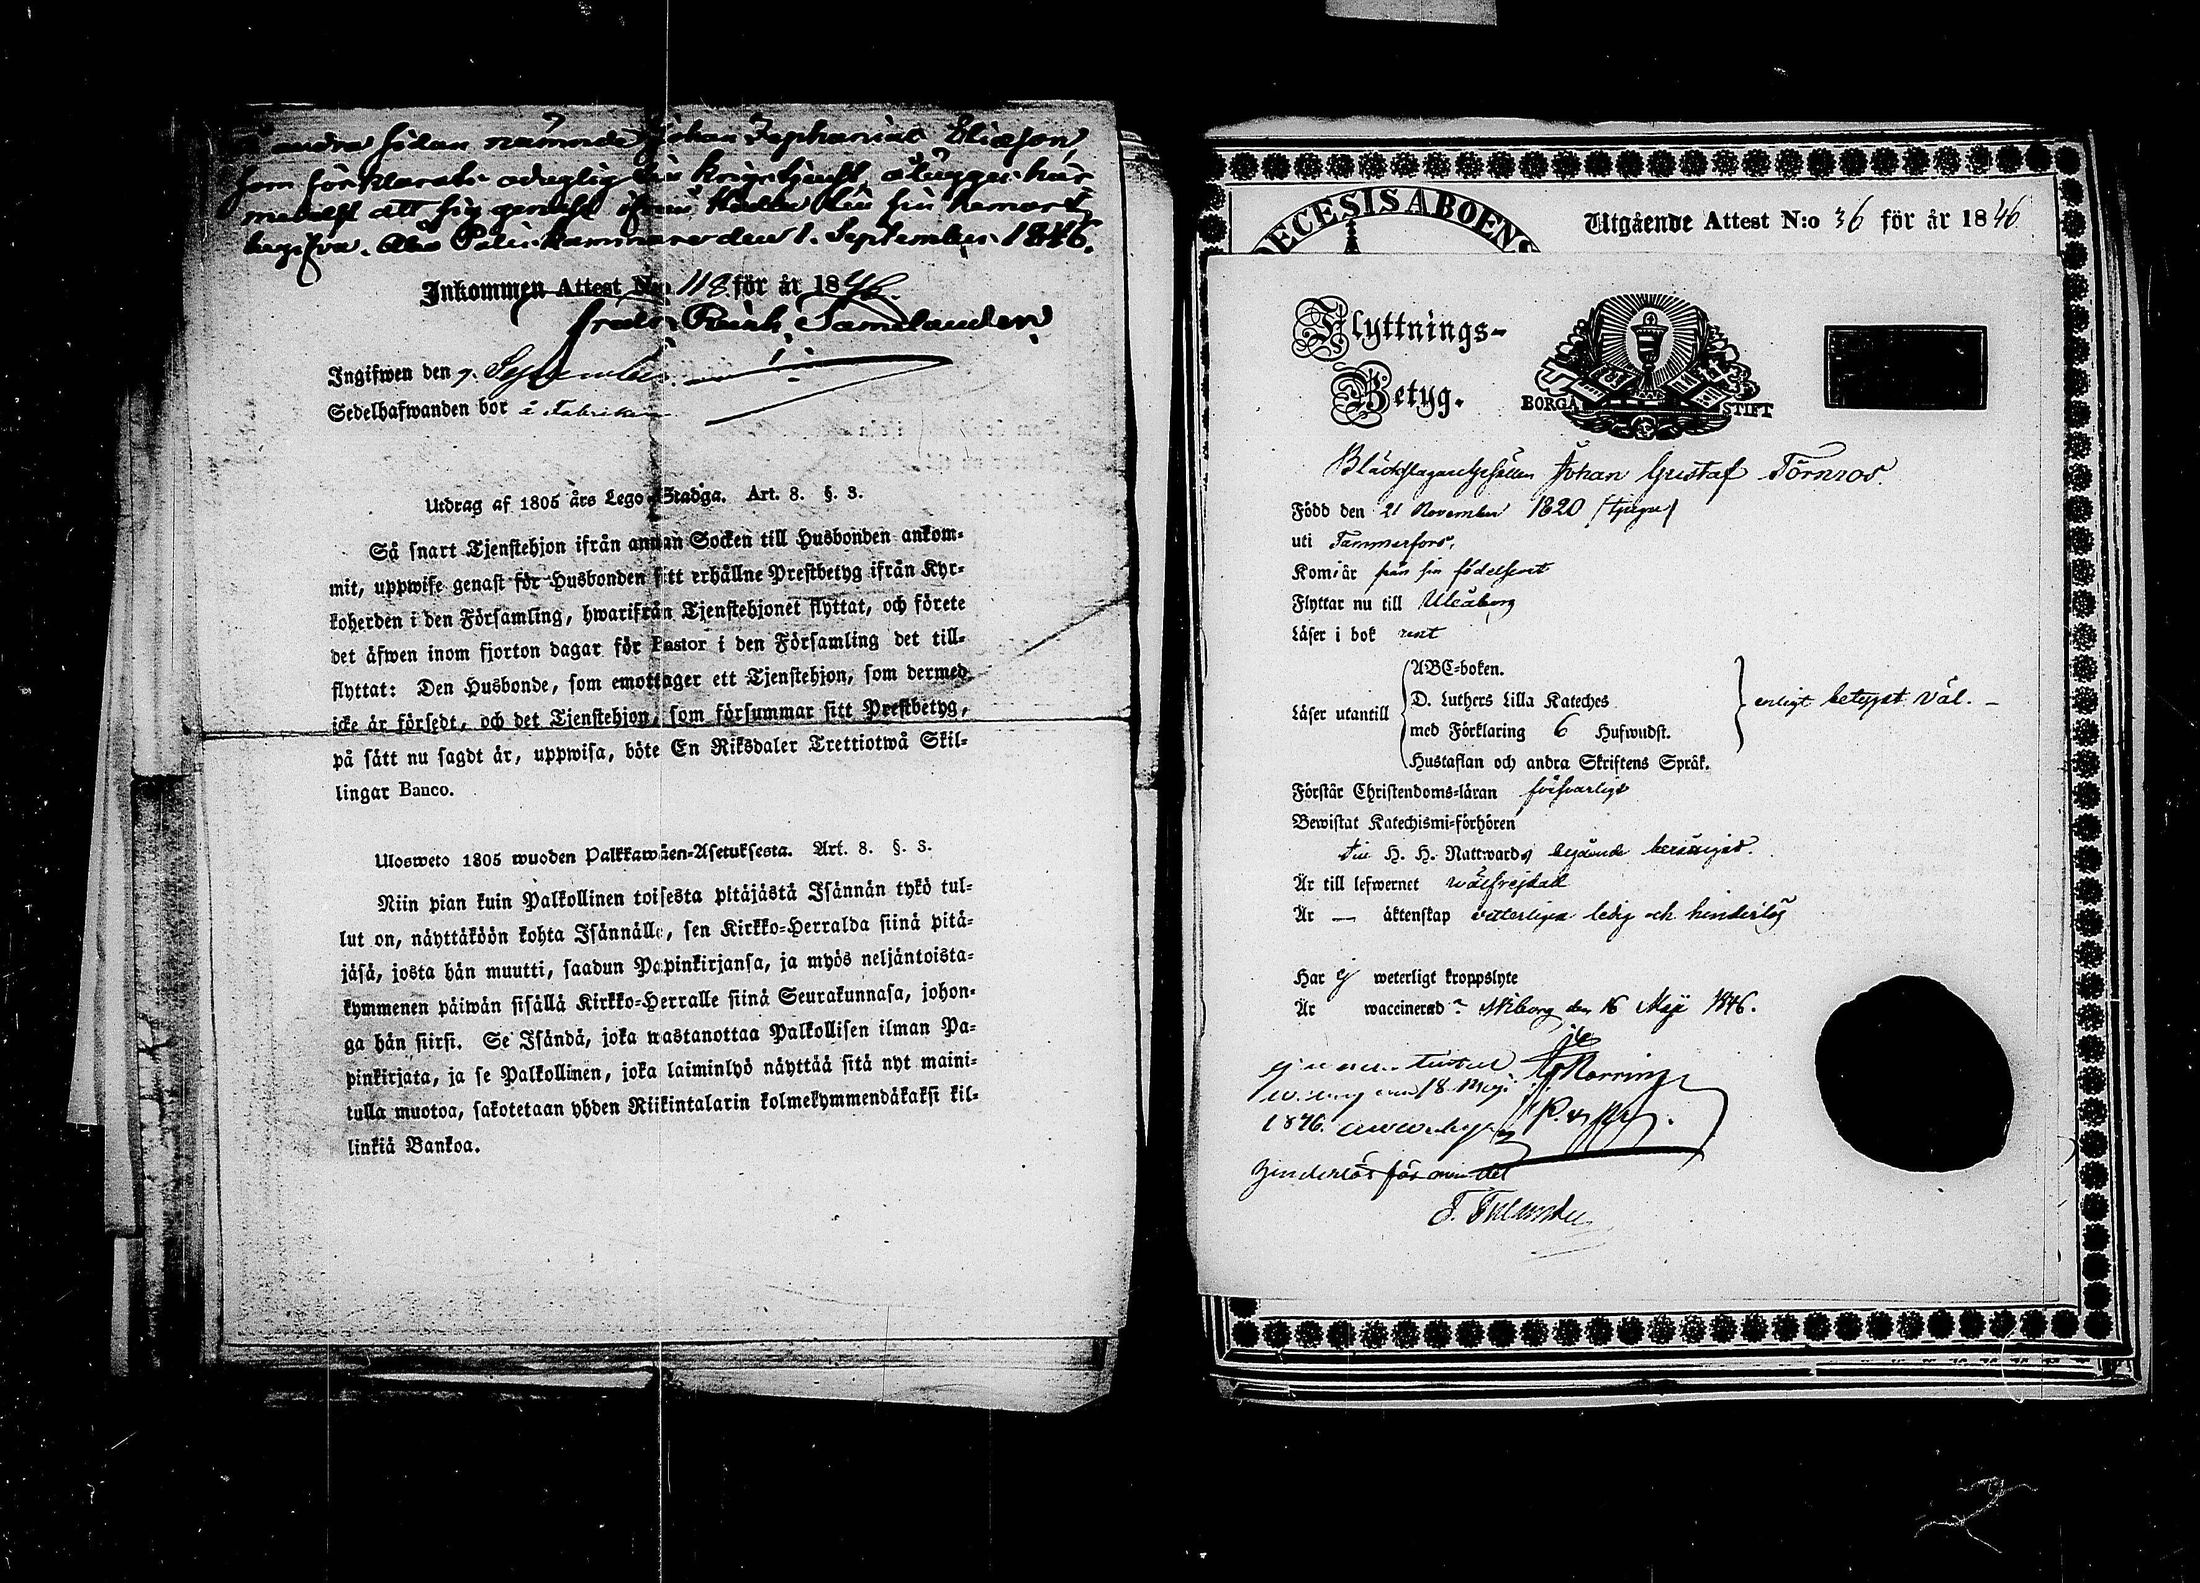 andra sidan nämnde Johan Zephanias Eliasson,
som förklarats oduglig till krigstjenst ålägges här-
medelst att sig genast ifrån staden till sin hemort
begifva. Åbo Poliskammare den 1. September 1846.
Inkommen Attest N:o 118 för år 1846.
Ingifwen den 7. September
Sedelhafwanden bor å Fabriken
Utdrag af 1805 års Lego-Stadga. Art. 8. §. 3.
Så snart Tjenstehjon ifrån annan Socken till Husbonden ankom-
mit, uppwise genast för Husbonden sitt erhållne Prestbetyg ifrån Kyr-
koherden i den Församling, hwarifrån Tjenstehjonet flyttat, och förete
det äfwen inom fjorton dagar för Pastor i den Församling det till-
flyttat: Den Husbonde, som emottager ett Tjenstehjon, som dermed
icke är försedt, och det Tjenstehjon, som försummar sitt Prestbetyg,
på sätt nu sagdt är, uppwisa, böte En Riksdaler Trettiotwå Skil-
lingar Banco.
Ulosweto 1805 wuoden Palkkawäen-Asetuksesta. Art. 8. §. 3.
Niin pian kuin Palkollinen toisesta pitäjästä Isännän tykö tul-
lut on, näyttäköön kohta Isännälle, sen Kirkko-Herralda siinä pitä-
jäsä, josta hän muutti, saadun Papinkirjansa, ja myös neljäntoista-
kymmenen päiwän sisällä Kirkko-Herralle siinä Seurakunnasa, johon-
ga hän siirsi. Se Isändä, joka wastanottaa Palkollisen ilman Pa-
pinkirjata, ja se Palkollinen, joka laiminlyö näyttää sitä nyt maini-
tulla muotoa, sakotetaan yhden Riikintalarin kolmekymmendäkaksi kil-
linkiä Bankoa.
ECESIS ABOENS
Utgående Attest N:o 36 för år 1846
Flyttnings-
Betyg.
BORGÅ STIFT
Bläckslagaregesällen Johan Gustaf Törnros.
Född den 21 November 1820 (tjugu)
uti Tammerfors,
Kom år från sin födelseort
Flyttar nu till Uleåborg
Läser i bok rent
Läser utantill
ABC-boken.
D. Luthers Lilla Kateches
med Förklaring 6 Hufwudst.
Hustaflan och andra Skriftens Språk.
enligt betyget väl. —
Förstår Christendoms-läran försvarligt
Bewistat Katechismi-förhören
till H. H. Nattwards begående berättigad.
Är till lefwernet wälfrejdad
Är — äktenskap veterligen ledig och hinderlös
Har ej weterligt kroppslyte
Är waccinerad? Wiborg den 16 Maji 1846.
18 Maji
1846.
Hinderlös för